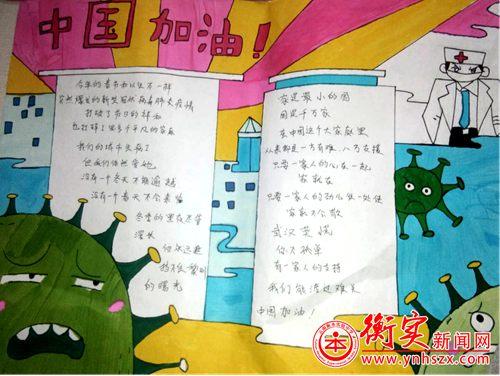 中国加油!
今年的春节和以往不一样
突然爆发的新型冠状病毒肺炎疫情
打破了节日的祥和
也打碎了许多平凡的家庭
我们的城市生病了
但我们依然爱她
没有一个冬天不能逾越
没有一个春天不会来临
冬季的黑夜尽管
漫长
但永远
挡不住黎明
的曙光
家是最小的国
国是千万家
在中国这个大家庭里
从来都是一方有难,八方支援
只要一家人的心在一起
家就在
只要一家人的劲儿往一处使
家就不会散
武汉莫慌
你不孤单
有一家人的支持
我们能渡过难关
中国加油!
衡实新闻网
www.ynhszx.com